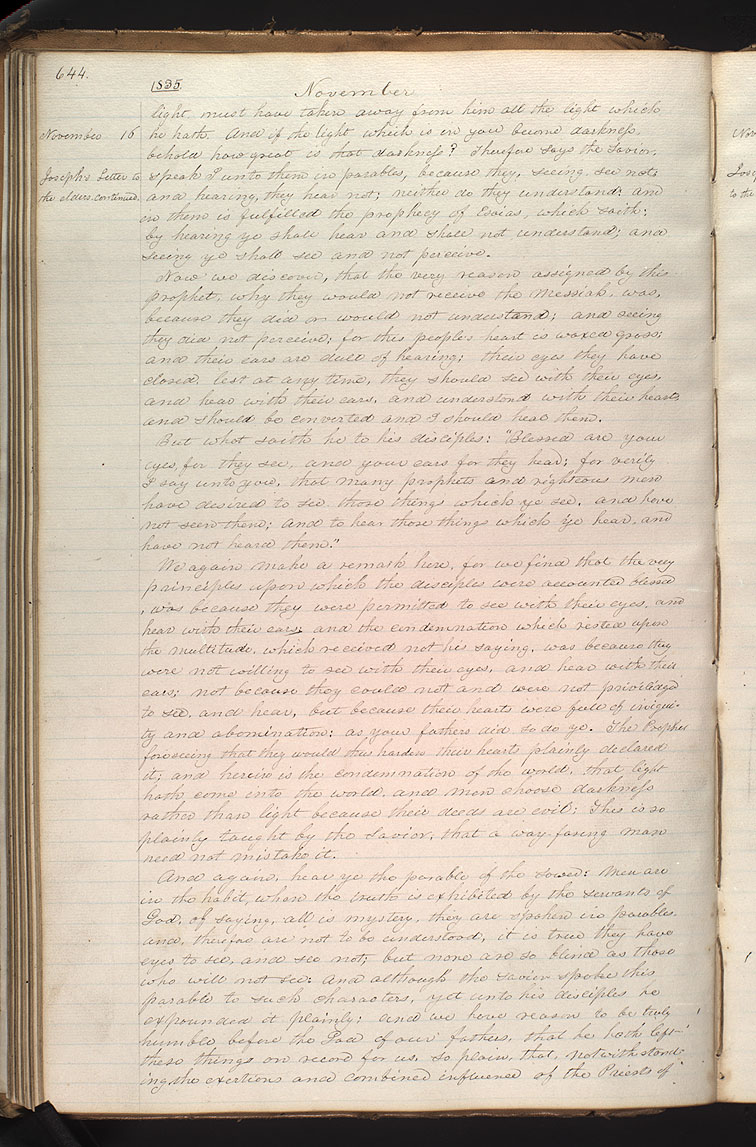 644.
1835
November
light must have taken away from him all the light which
November 16
he hath. And if the light which is in you become darkness,
behold how great is that darkness? Therefore says the Savior,
Joseph's Letter to
speak I unto them in parables, because they, seeing, see not:
the elders. continued.
and hearing, they hear not; neither do they understand: and
in them is fulfilled the prophecy of Esaias, which saith:
by hearing ye shall hear and shall not understand; and
seeing ye shall see and not perceive.
Now we discover, that the very reason assigned by this
prophet, why they would not receive the Messiah, was,
because they did or would not understand; and seeing
they did not perceive: for this people's heart is waxed gross;
and their ears are dull of hearing; their eyes they have
closed, lest at any time, they should see with their eyes,
and hear with their ears, and understand with their hearts,
and should be converted and I should heal them.
But what saith he to his disciples: "Blessed are your
eyes, for they see, and your ears for they hear; for verily
I say unto you, that many prophets and righteous men
have desired to see those things which ye see, and have
not seen them; and to hear those things which ye hear, and
have not heard them."
We again make a remark here, for we find that the very
principles upon which the disciples were accounted blessed
, was because they were permitted to see with their eyes, and
hear with their ears; and the condemnation which rested upon
the multitude, which received not his saying, was because they
were not willing to see with their eyes, and hear with their
ears; not because they could not and were not priviledged
to see, and hear, but because their hearts were full of iniqui-
ty and abomination: as your fathers did so do ye. The Prophet
foreseeing that they would thus harden their hearts plainly declared
it; and herein is the condemnation of the world, that light
hath come into the world, and men choose darkness
rather than light because their deeds are evil: This is so
plainly taught by the Savior, that a way-faring man
need not mistake it.
And again, hear ye the parable of the sower: Men are
in the habit, when the truth is exhibited by the servants of
God, of saying, all is mystery, they are spoken in parables,
and, therefore are not to be understood, it is true they have
eyes to see, and see not; but none are so blind as those
who will not see: And although the Savior spoke this
parable to such characters, yet unto his disciples he
expounded it plainly; and we have reason to be truly
humble before the God of our fathers, that he hath left
these things on record for us, so plain, that, notwithstand-
ing the exertions and combined influence of the Priests of